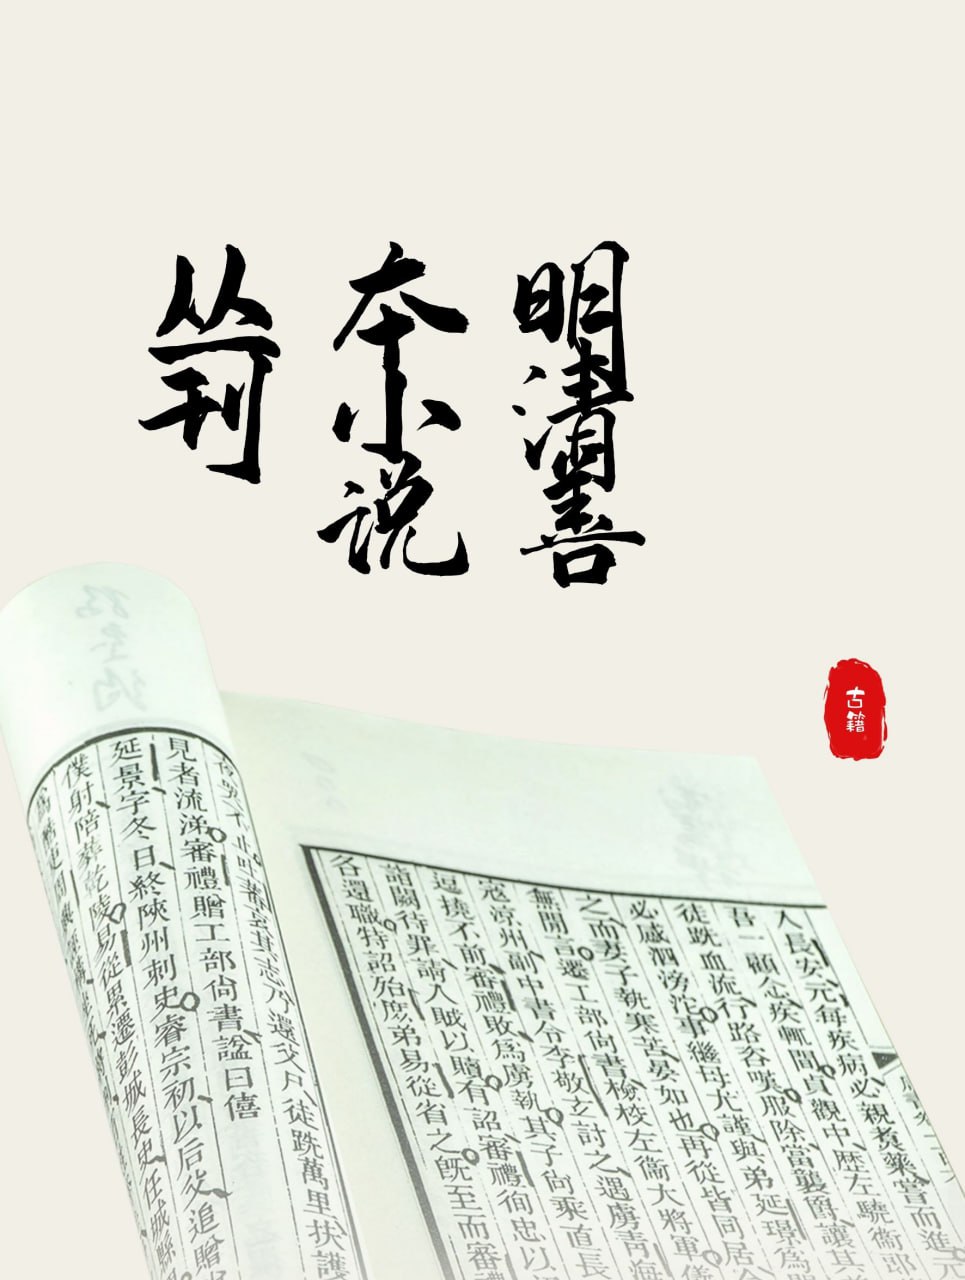 明清善
本小说
丛刊
古籍
人長安元每疾病必親煮藥嘗而進元
吾一顧念疾輒間貞觀中歷左驍衛郎
徒跣血流行路咨嘆服除當襲爵讓其
必感泗滂沱事繼母尤謹與弟延景為
之而妻子執寒苦晏如也再從皆同居
無閒言遷工部尚書檢校左衛大將軍
寇涼州副中書令李敬玄討之遇虜青海
逗撓不前審禮敗為虜執其子向乘直長
詣闕待罪請人賊以贖有詔審禮徇忠以
各還職特詔殆庶弟易從省之既至而審
志乃還父尸徒跣萬里扶護
見者流涕審禮贈工部尚書諡曰僖
延景字冬日終陝州刺史睿宗初以后父追贈
僕射陪葬乾陵易從累遷彭城長史任城縣